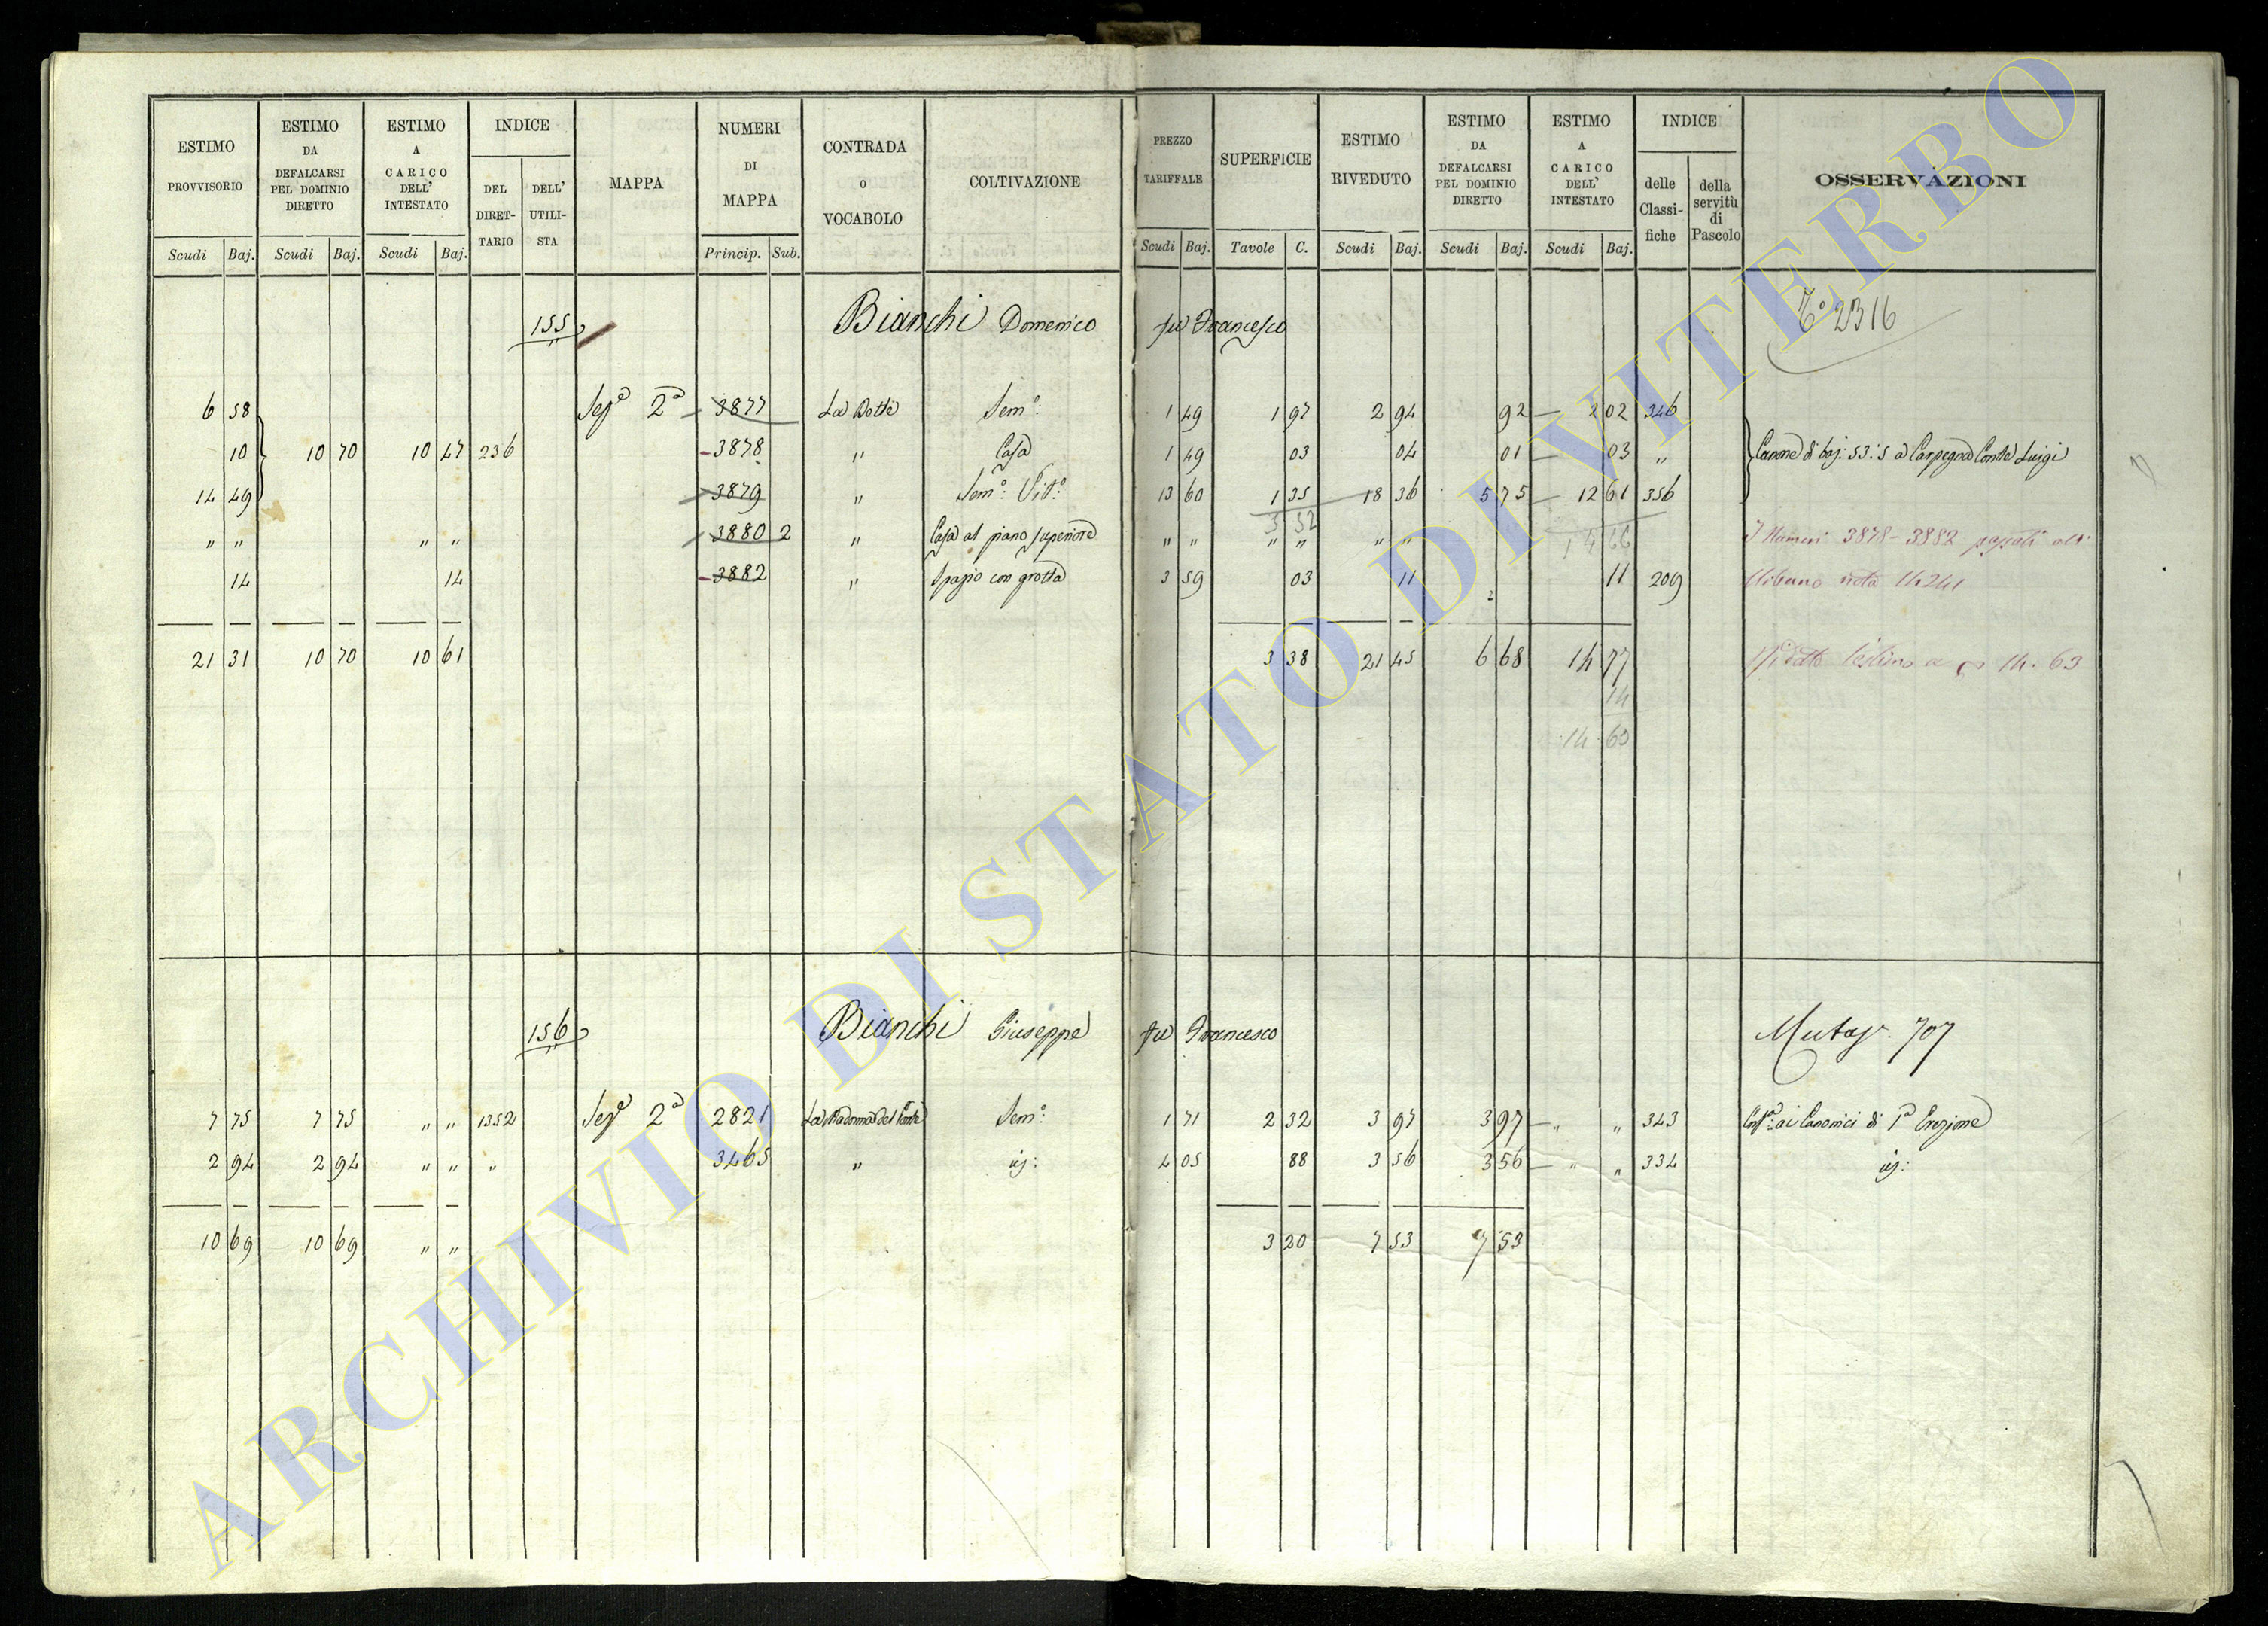 ESTIMO PROVVISORIO
ESTIMO DA DEFALCARSI PEL DOMINIO DIRETTO
ESTIMO A CARICO DELL' INTESTATO
INDICE
DEL DIRET-TARIO
DELL' UTILI-STA
MAPPA
NUMERI DI MAPPA
CONTRADA O VOCABOLO
COLTIVAZIONE
PREZZO TARIFFALE
SUPERFICIE
ESTIMO RIVEDUTO
ESTIMO DA DEFALCARSI PEL DOMINIO DIRETTO
ESTIMO A CARICO DELL' INTESTATO
INDICE
delle Classi-fiche
della servitù di Pascolo
OSSERVAZIONI
Scudi Baj. Scudi Baj. Scudi Baj. Princip. Sub. Scudi Baj. Tavole C. Scudi Baj. Scudi Baj. Scudi Baj.
155 Bianchi Domenico fu Francesco 2316
6 58 Sez.e 2a 3877 Sem.o 1 49 1 97 2 94 92 2 02 346
10 10 70 10 47 236 3878 " Casa 1 49 03 04 01 03 " Canone di baj: 53:5 a Carpegna Conte Luigi
14 49 3879 " Sem.o Vit.o 13 60 1 35 18 36 5 75 12 61 356
3 52
" " " " 3880 2 " Casa al piano superiore " " " " " "
I Numeri 3878-3882 passati
14 14 3882 " Spazio con grotta 3 59 03 11 11 209 nota 14241
21 31 10 70 10 61 3 38 21 45 6 68 14 77 l'estimo a 14.63
14
14.60
156 Bianchi Giuseppe fu Francesco Mutaz. 707
7 75 7 75 " " 1352 Sez.e 2a 2821 La Madonna del Ponte Sem.o 1 71 2 32 3 97 3 97 " " 343 ai Canonici di Pa Erezione
2 94 2 94 " " " 3465 " 4 05 88 3 56 3 56 " " 334
10 69 10 69 " " 3 20 7 53 7 53
ARCHIVIO DI STATO DI VITERBO